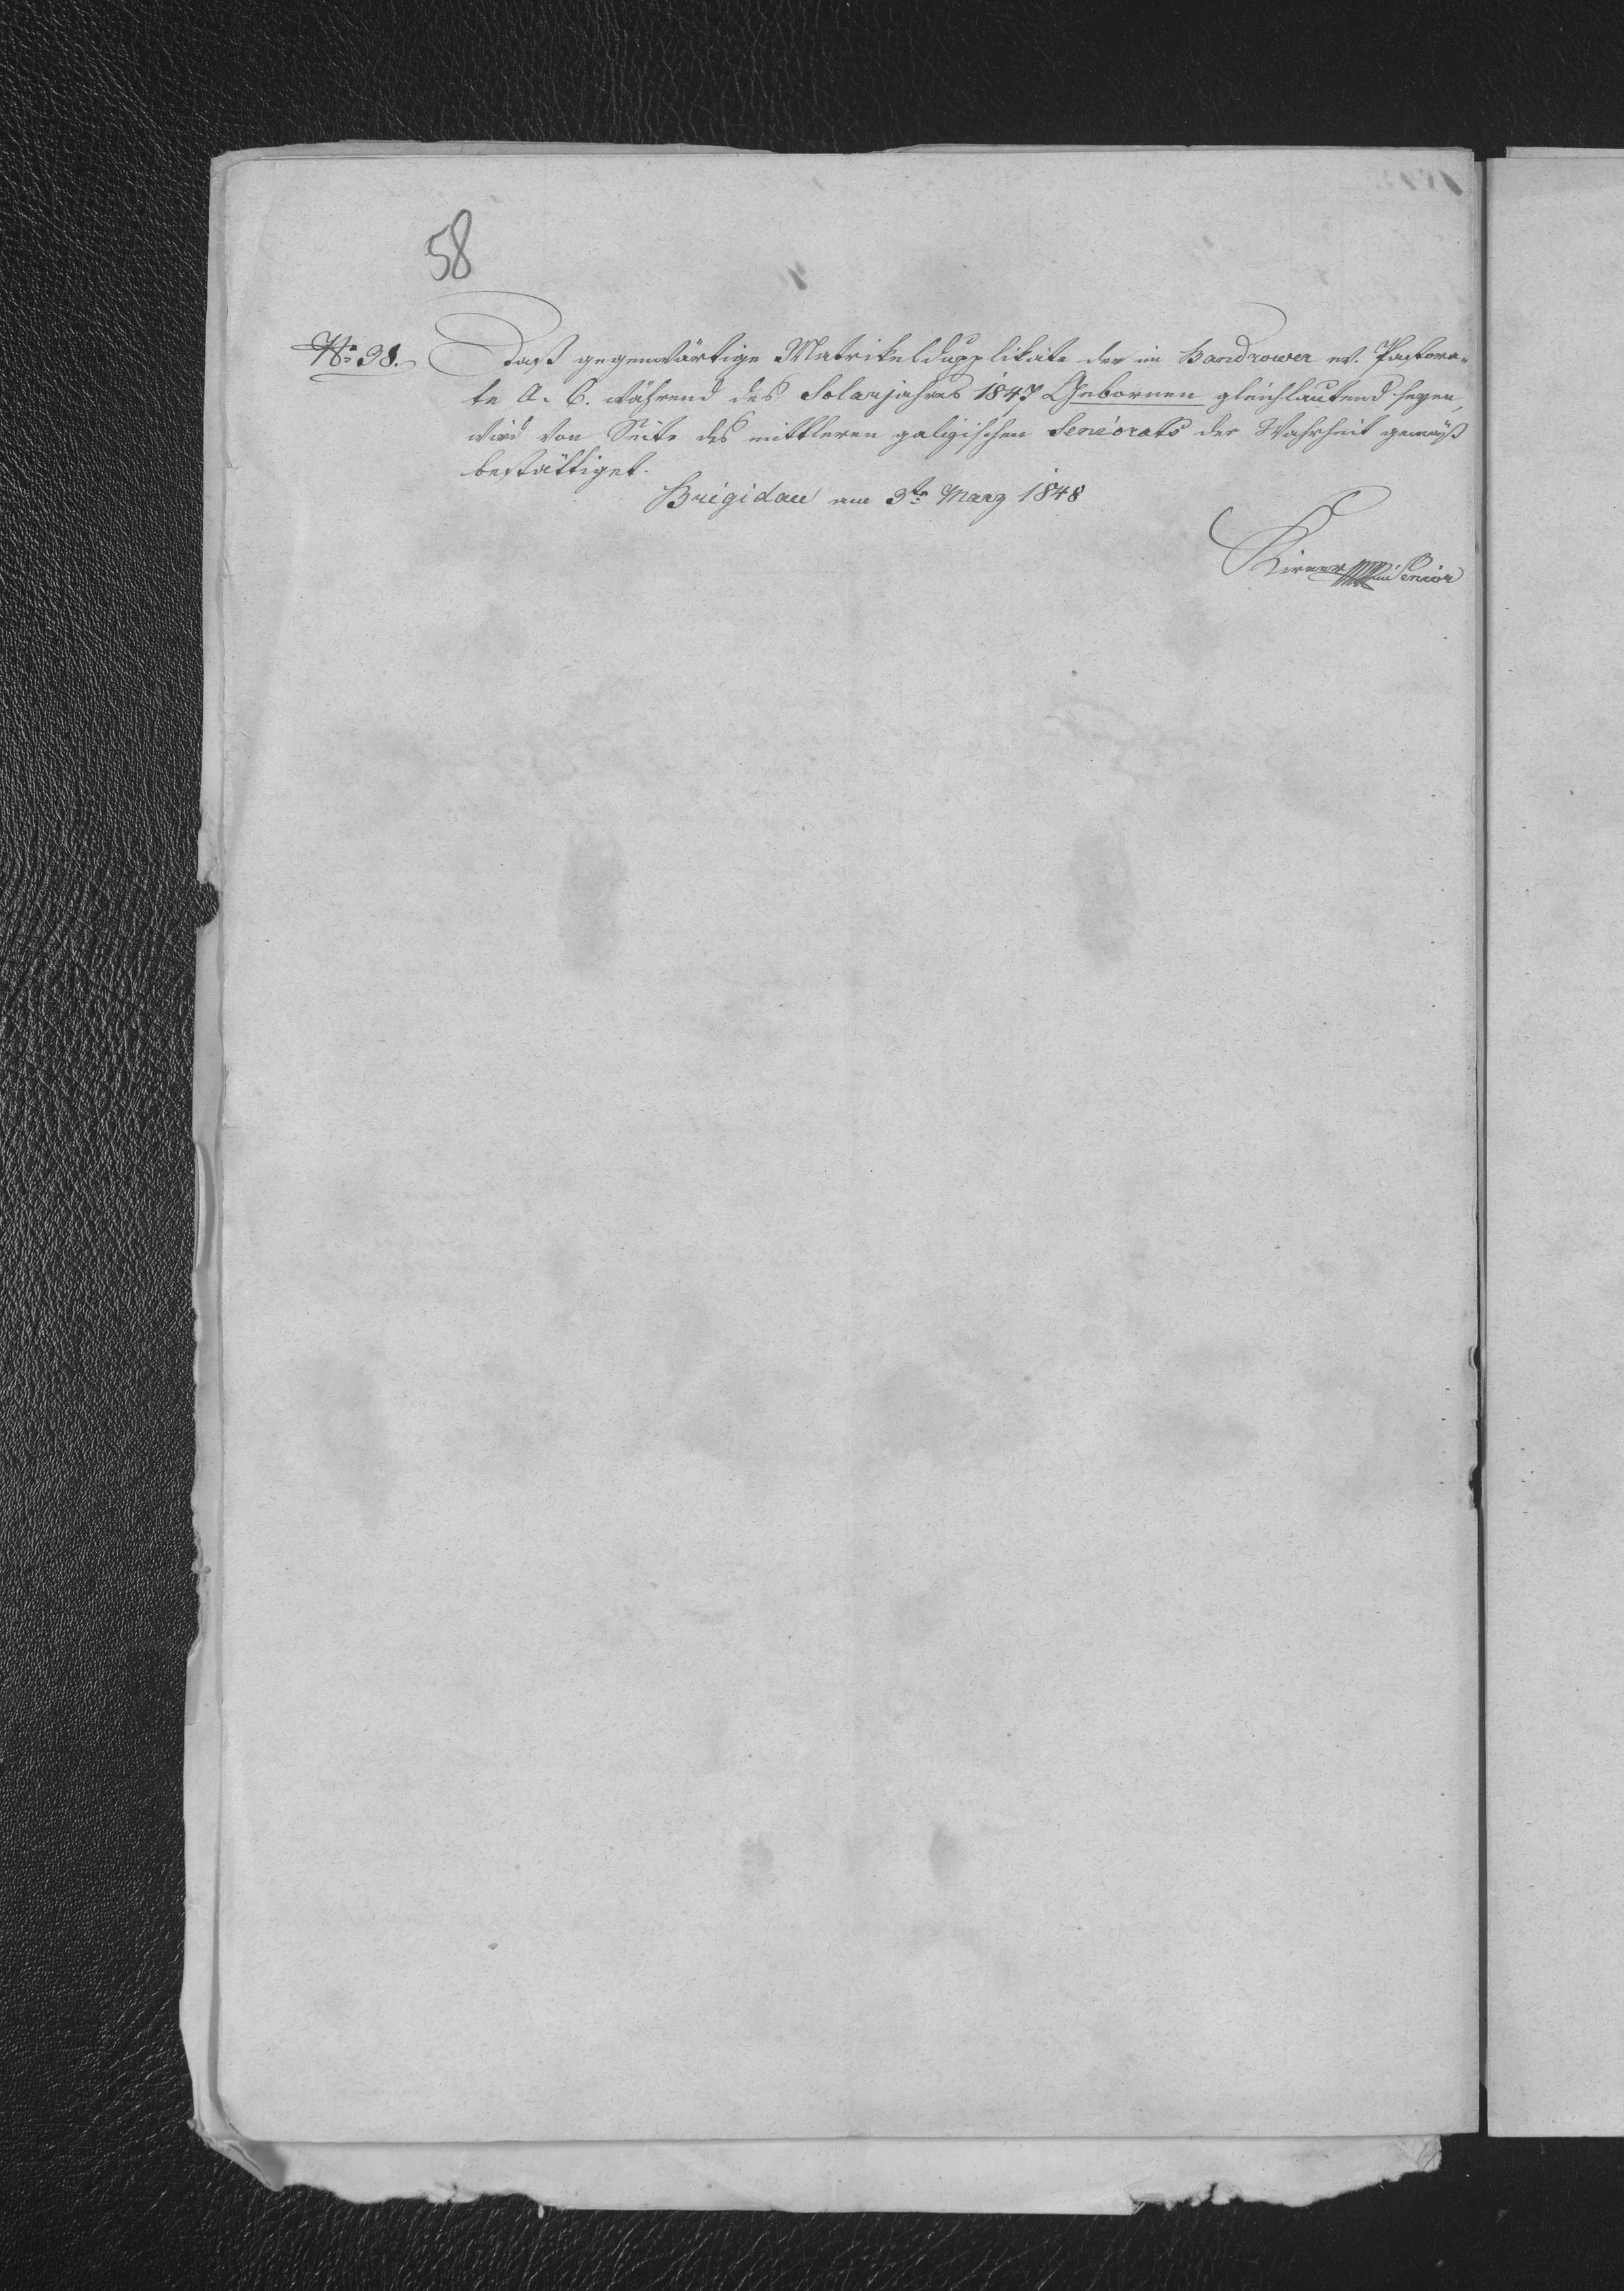 58
No 38. Daß gegenwärtige Matrikelduplikate der im Bandrower ev. Pastora-
te A. C. während des Solarjahres 1847 Gebornen gleichlautend seyen,
wird von Seite des mittleren galizischen Seniorats der Wahrheit gemäß
bestättiget.
Brigidau am 3te März 1848
Senior